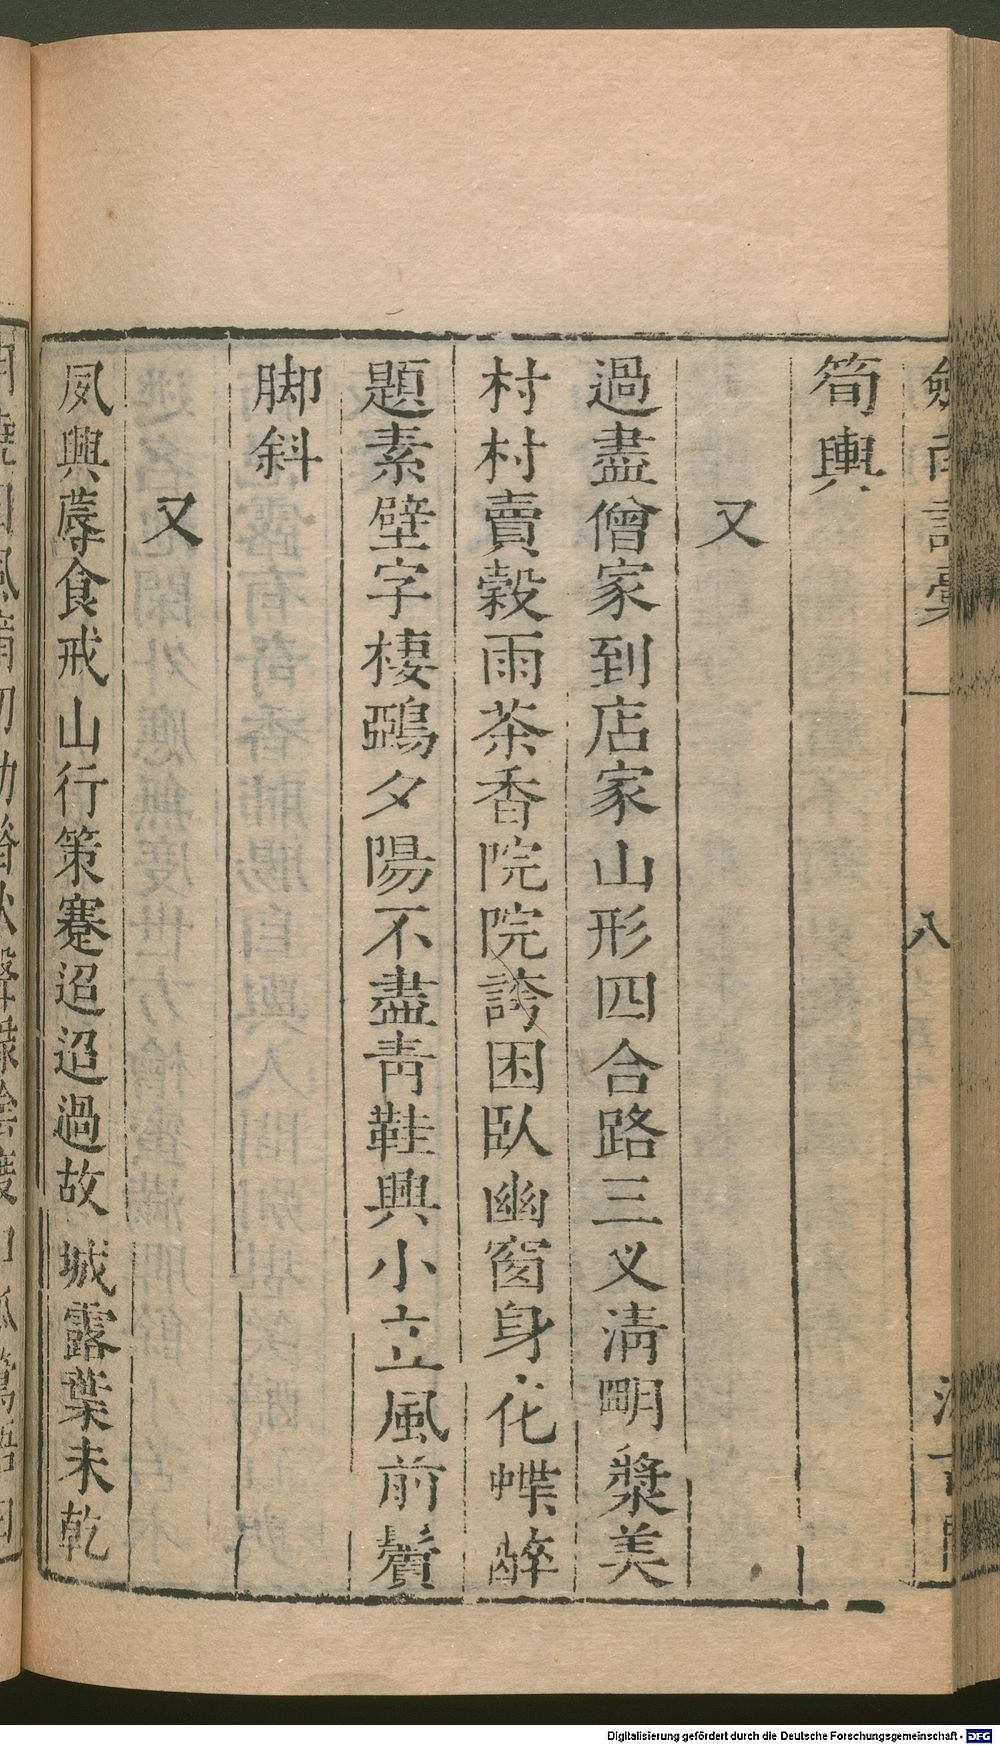 筍輿
又
過盡僧家到店家山形四合路三叉清明漿美
村村賣穀雨茶香院院誇困臥幽窗身化蝶醉
題素壁字棲鴉夕陽不盡青鞋興小立風前鬢
脚斜
又
夙興蓐食戒山行策蹇迢迢過故城露葉未乾
八
Digitalisierung gefördert durch die Deutsche Forschungsgemeinschaft - DFG